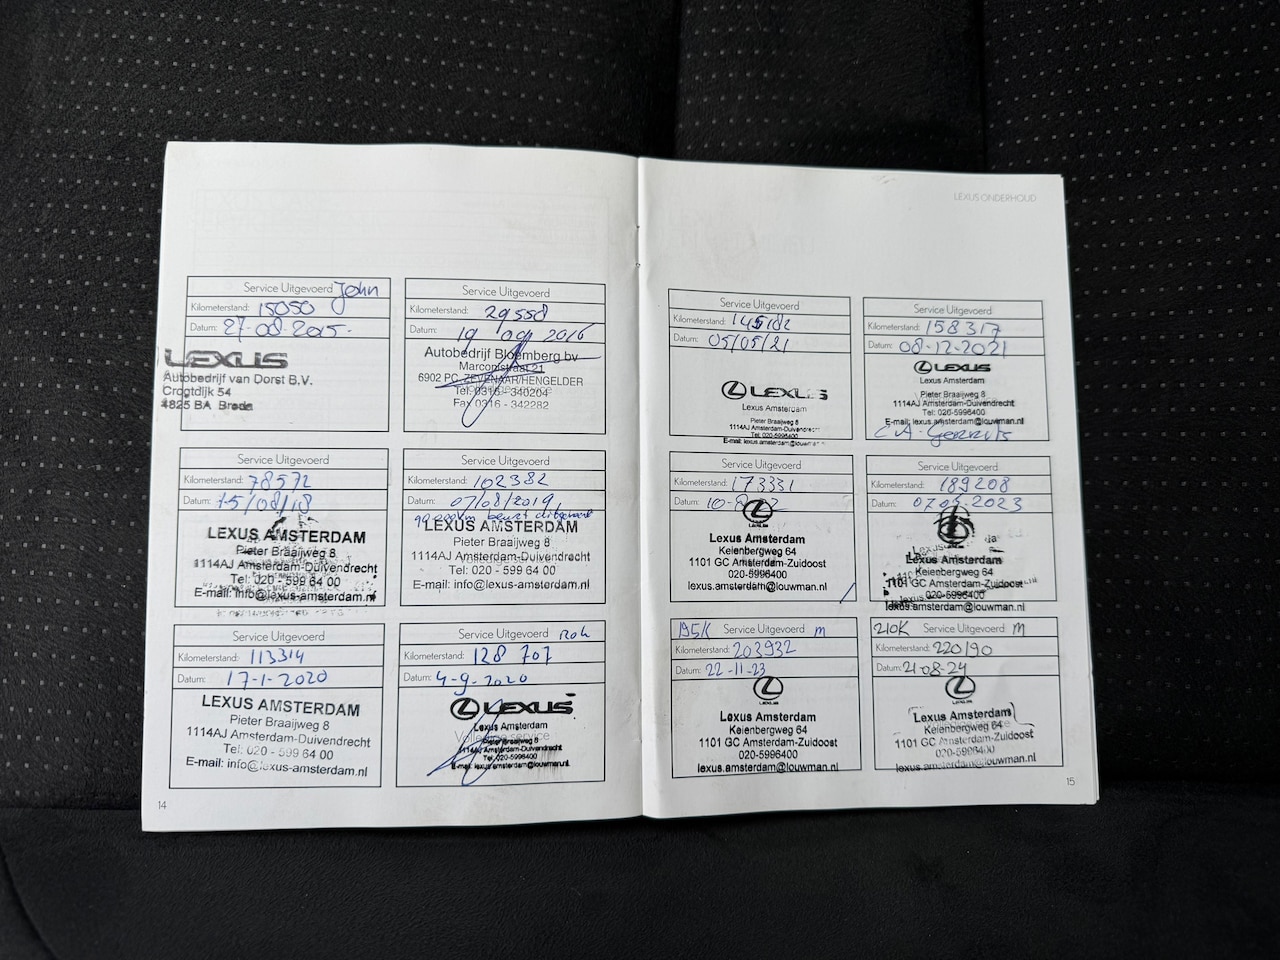 LEXUS ONDERHOUD
Service Uitgevoerd John
Kilometerstand: 15050
Datum: 27-08-2015-
LEXUS
Autobedrijf van Dorst B.V.
Crogtdijk 54
4825 BA Breda
Service Uitgevoerd
Kilometerstand: 29558
Datum: 19 09 2016
Autobedrijf Bloemberg bv
Marconistraat 21
6902 PC ZEVENAAR/HENGELDER
Tel. 0316 - 340204
Fax 0316 - 342282
Service Uitgevoerd
Kilometerstand: 78572
Datum: 15/08/18
LEXUS AMSTERDAM
Pieter Braaijweg 8
1114AJ Amsterdam-Duivendrecht
Tel: 020 - 599 64 00
E-mail: info@lexus-amsterdam.nl
Service Uitgevoerd
Kilometerstand: 102382
Datum: 07/08/2019
90.000km beurt uitgevoerd
LEXUS AMSTERDAM
Pieter Braaijweg 8
1114AJ Amsterdam-Duivendrecht
Tel: 020 - 599 64 00
E-mail: info@lexus-amsterdam.nl
Service Uitgevoerd
Kilometerstand: 113314
Datum: 17-1-2020
LEXUS AMSTERDAM
Pieter Braaijweg 8
1114AJ Amsterdam-Duivendrecht
Tel: 020 - 599 64 00
E-mail: info@lexus-amsterdam.nl
Service Uitgevoerd
Kilometerstand: 128 707
Datum: 4-9-2020
LEXUS
Lexus Amsterdam
Volledige service
Pieter Braaijweg 8
1114AJ Amsterdam-Duivendrecht
Tel. 020-5996400
E-mail: lexus.amsterdam@louwman.nl
14
Service Uitgevoerd
Kilometerstand: 145182
Datum: 05/05/21
LEXUS
Lexus Amsterdam
Pieter Braaijweg 8
1114AJ Amsterdam-Duivendrecht
Tel: 020-5996400
E-mail: lexus.amsterdam@louwman.nl
Service Uitgevoerd
Kilometerstand: 158317
Datum: 08-12-2021
LEXUS
Lexus Amsterdam
Pieter Braaijweg 8
1114AJ Amsterdam-Duivendrecht
Tel: 020-5996400
E-mail: lexus.amsterdam@louwman.nl
Service Uitgevoerd
Kilometerstand: 173331
Datum: 10-8-
LEXUS
Lexus Amsterdam
Keienbergweg 64
1101 GC Amsterdam-Zuidoost
020-5996400
lexus.amsterdam@louwman.nl
Service Uitgevoerd
Kilometerstand: 189208
Datum: 2023
Lexus Amsterdam
Keienbergweg 64
1101 GC Amsterdam-Zuidoost
020-5996400
lexus.amsterdam@louwman.nl
195K Service Uitgevoerd m
Kilometerstand: 203932
Datum: 22-11-23
LEXUS
Lexus Amsterdam
Keienbergweg 64
1101 GC Amsterdam-Zuidoost
020-5996400
lexus.amsterdam@louwman.nl
210K Service Uitgevoerd m
Kilometerstand: 220190
Datum: 21-08-24
LEXUS
Lexus Amsterdam
Keienbergweg 64
1101 GC Amsterdam-Zuidoost
020-5996400
lexus.amsterdam@louwman.nl
15